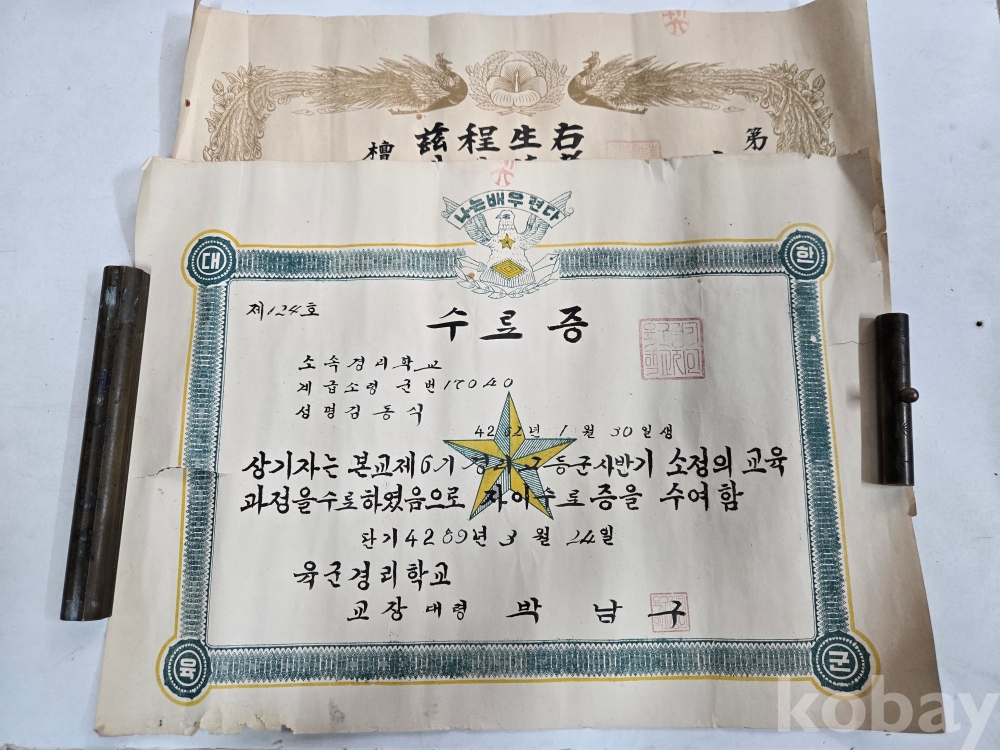 第
右
生
程
茲
檀
나는 배우련다
대 한
제124호
수료증
소속 경리학교
계급 소령 군번 17040
성명 김동식
4262년 1월 30일생
상기자는 본교 제6기 경리고등군사반기 소정의 교육
과정을 수료하였음으로 자이 수료증을 수여함
단기 4289년 3월 24일
육군경리학교
교장 대령 박남구
육 군
kobay